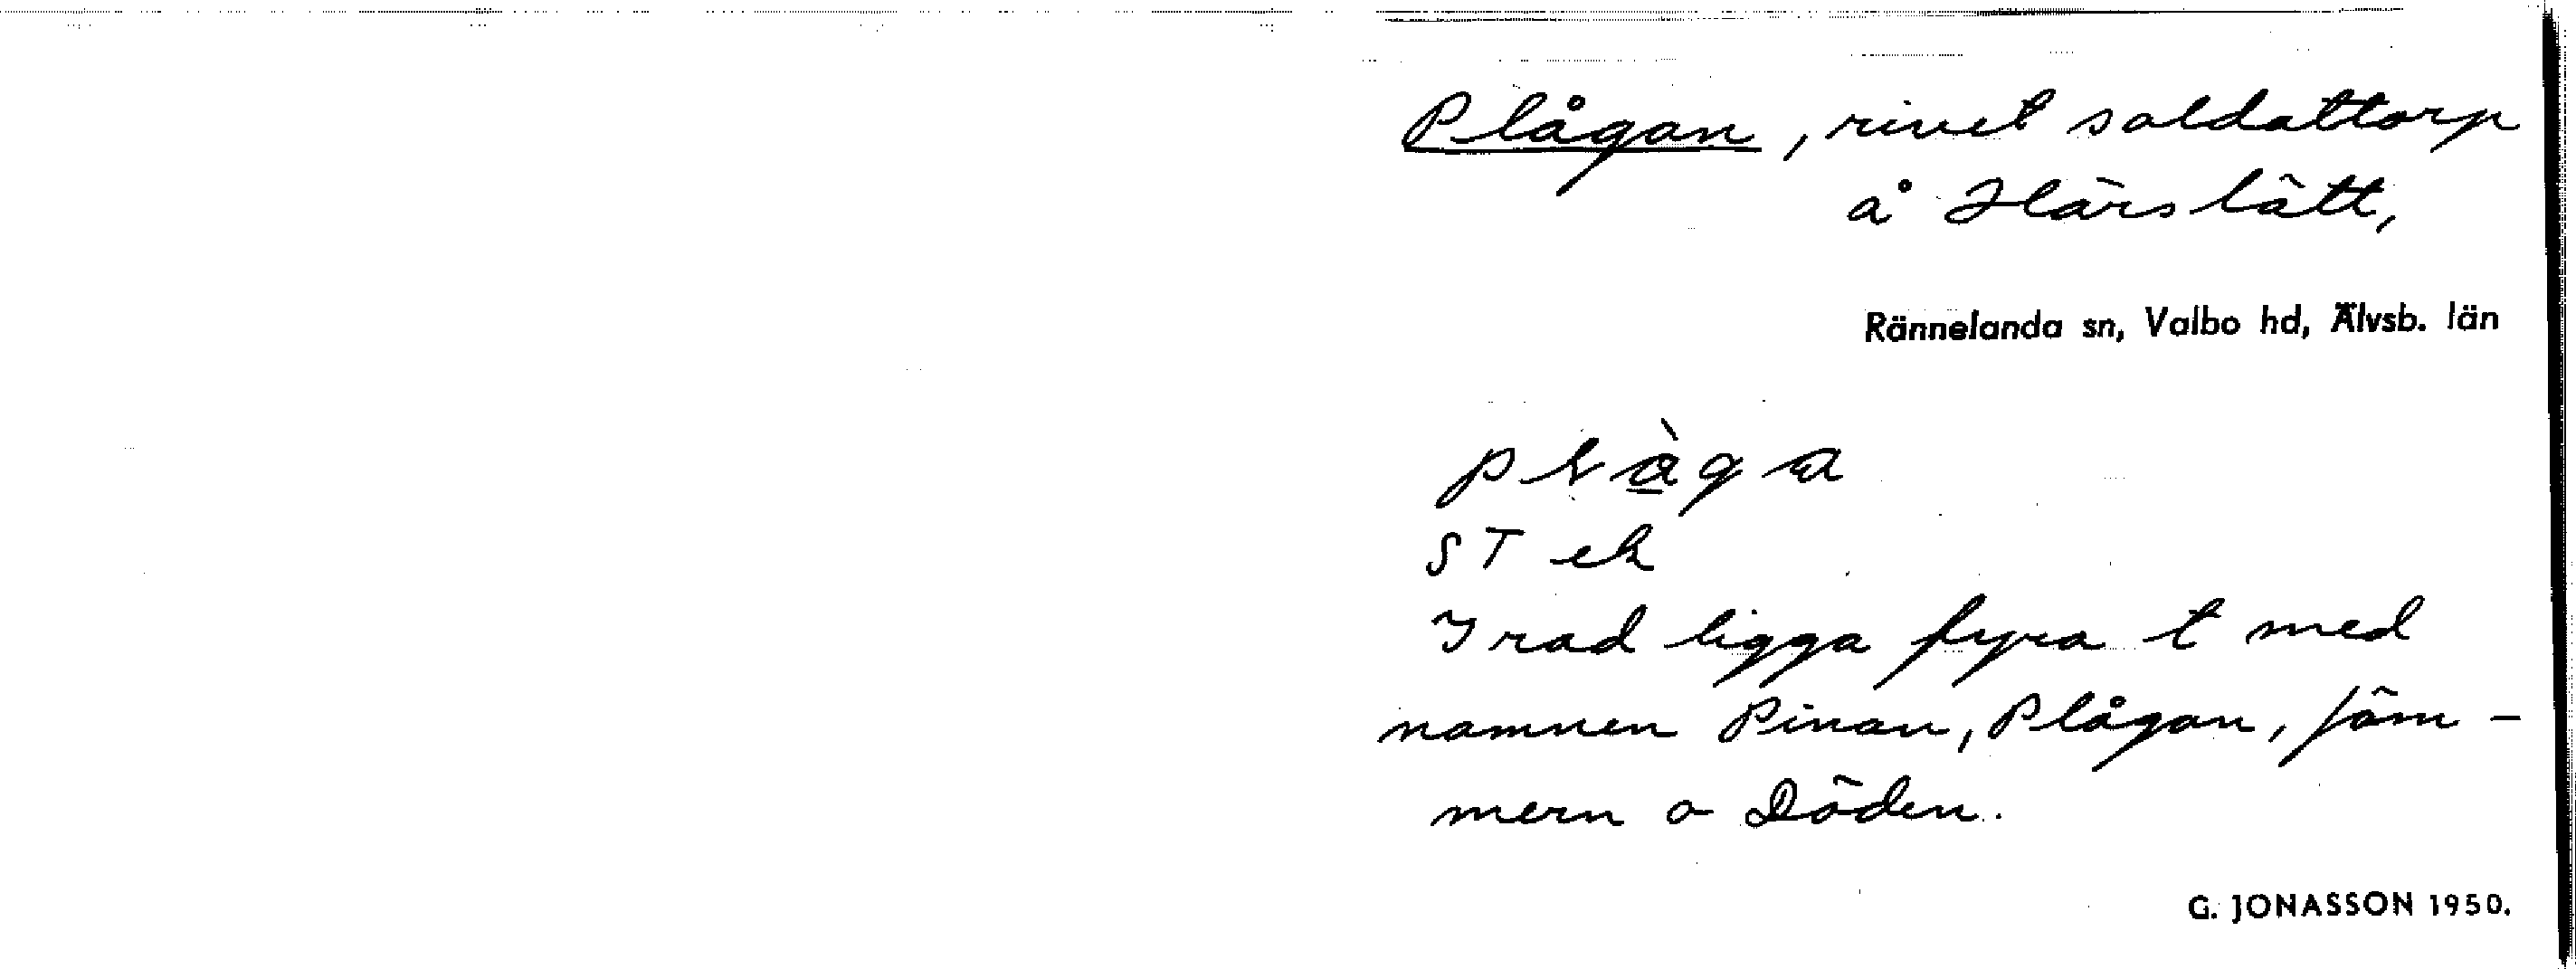 Plågan, rivet soldattorp
å Härslätt,
Rännelanda sn, Valbo hd, Älvsb. län
ST ek
I rad ligga fyra t med
namnen Pinan, Plågan, Jäm-
mern o Döden.
G. JONASSON 1950.